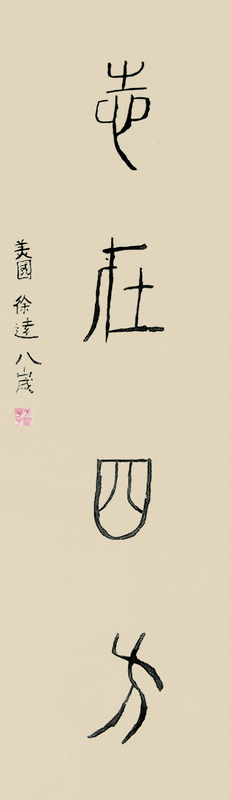 志在四方
美國 徐達 八歲